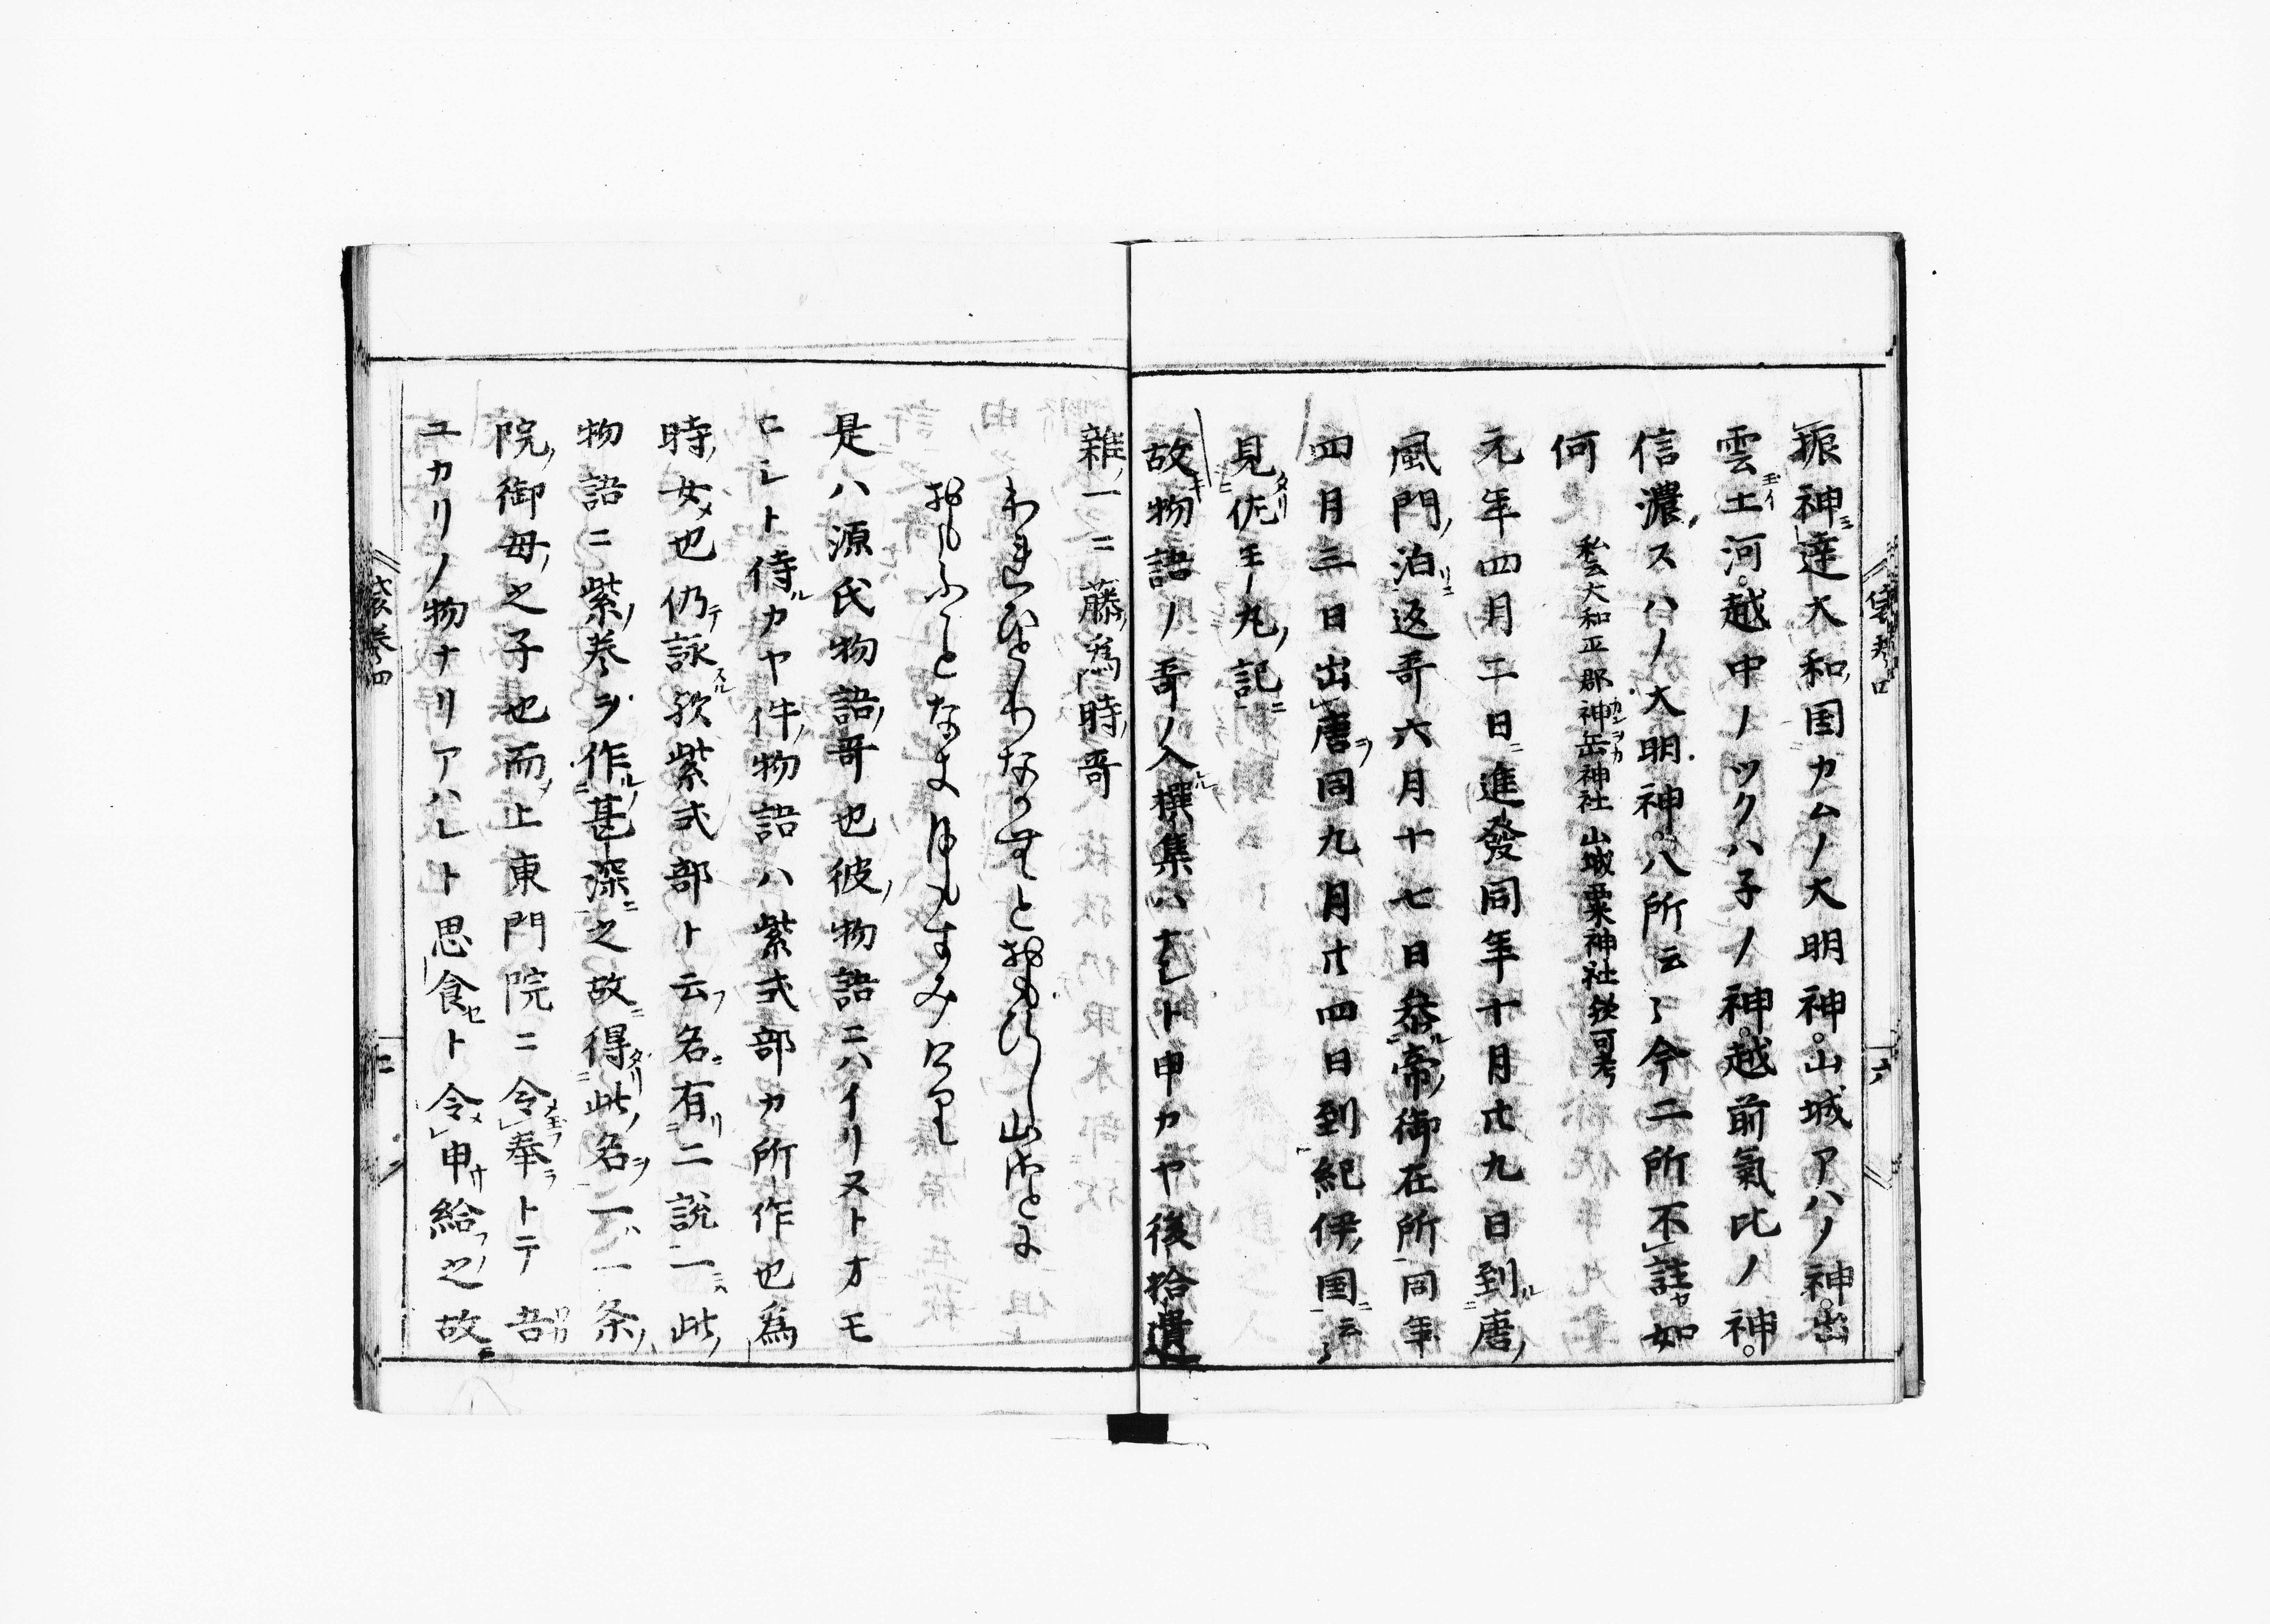 振神達大和国カムノ大明神。山城アハノ神。出
雲土河。越中ノツクハ子ノ神。越前氣比ノ神。
信濃スハノ大明神。八所云々今二所不註如
何 私云大和正郡神岳神社 山城粟神社 欤可考
元年四月二日進發同年十月廿九日到唐
風門泊返哥六月十七日恭帝御在所同年
四月三日出唐同九月廿四日到紀伊国云々
見佐王丸記
故物語ノ哥ノ入撰集ハナシト申カヤ後拾遺
雜一ニ藤為時哥
われひとりなかむとおもひし山さとに
おもふことなき月もすみけり
是ハ源氏物語哥也彼物語ニハイリストオモ
ヒシト侍カヤ件物語ハ紫式部カ所作也為
時女也仍詠欤紫式部ト云名有二說一此
物語ニ紫巻ヲ作甚深之故得此名一条
院御母之子也而上東門院ニ令奉トテ吾
ユカリノ物ナリアハレト思食ト令申給之故
袋巻四